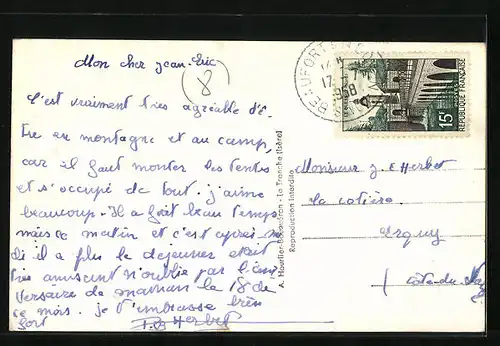 Mon cher Jean-Eric
(8)
C'est vraiment très agréable d'ê
tre en montagne et au camp,
car il faut monter les tentes
et s'occupé de tout. j'aime
beaucoup. Il a fait beau temps
mais ce matin et c'est après mi
di il a plus le dejeuner était
très amusant n'oublie pas l'ani
versaire de maman le 18 de
ce mois. je t'embrasse bien
fort
Herbet
A. Hourlier-Bocandron - La Tronche (Isère)
Reproduction Interdite
BEAUFORT
17
1958
15F
POSTES
REPUBLIQUE FRANÇAISE
Monsieur J. E Herbet
La cotière
Erquy
Côte-du-